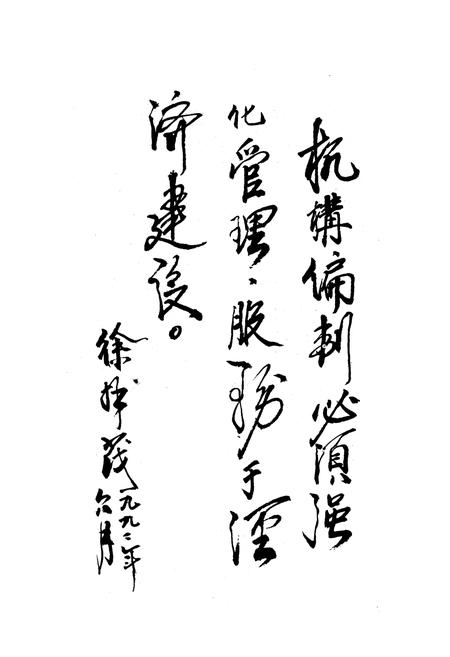 机構编制必须强
化管理、服務于经
济建设。
徐
一九九二年
六月